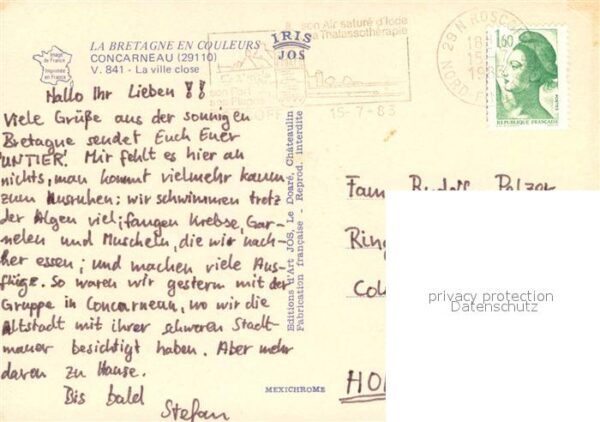 LA BRETAGNE EN COULEURS
CONCARNEAU (29110)
V. 841 - La ville close
Image de France
Imprimée en France
IRIS
JOS
son Air saturé d'Iode
la Thalassothérapie
15-7-83
29 N. ROSC
1,60
REPUBLIQUE FRANÇAISE
Hallo Ihr Lieben !!
Viele Grüße aus der sonnigen
Bretagne sendet Euch Euer
'UNTIER'. Mir fehlt es hier an
nichts, man kommt vielmehr kaum
zum Ausruhen; wir schwimmen trotz
der Algen viel; fangen Krebse, Gar-
nelen und Muscheln, die wir nach-
her essen; und machen viele Aus-
flüge. So waren wir gestern mit der
Gruppe in Concarneau, wo wir die
Altstadt mit ihrer schweren Stadt-
mauer besichtigt haben. Aber mehr
davon zu Hause.
Bis bald
Stefan
Editions d'Art JOS, Le Doaré, Châteaulin
Fabrication française - Reprod. interdite
MEXICHROME
Fam. Rudolf
Ring
privacy protection
Datenschutz